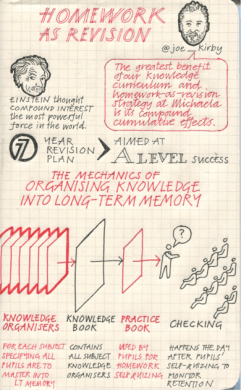 HOMEWORK
AS REVISION
@joe_kirby
The greatest benefit
of our knowledge
curriculum and
homework-as-revision
strategy at Michaela
is its compound
cumulative effects.
EINSTEIN thought
COMPOUND INTEREST
the most powerful
force in the world.
7 YEAR
REVISION
PLAN
> AIMED AT
A LEVEL success
THE MECHANICS OF
ORGANISING KNOWLEDGE
INTO LONG-TERM MEMORY
?
KNOWLEDGE
ORGANISERS
FOR EACH SUBJECT
SPECIFYING ALL
PUPILS ARE TO
MASTER INTO
LT MEMORY
KNOWLEDGE
BOOK
CONTAINS
ALL SUBJECT
KNOWLEDGE
ORGANISERS
PRACTICE
BOOK
USED BY
PUPILS FOR
HOMEWORK
SELF-QUIZZING
CHECKING
HAPPENS THE DAY
AFTER PUPILS'
SELF-QUIZZING TO
MONITOR
RETENTION